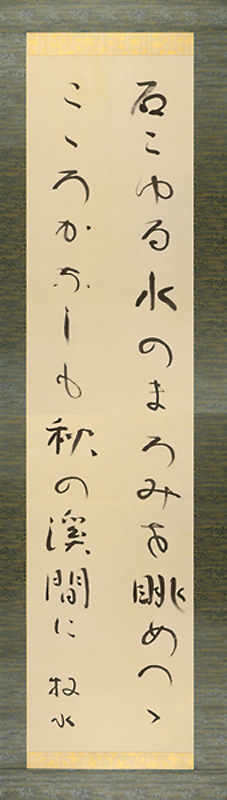 石こゆる水のまろみを眺めつゝ
こころかなしも秋の渓間に 牧水